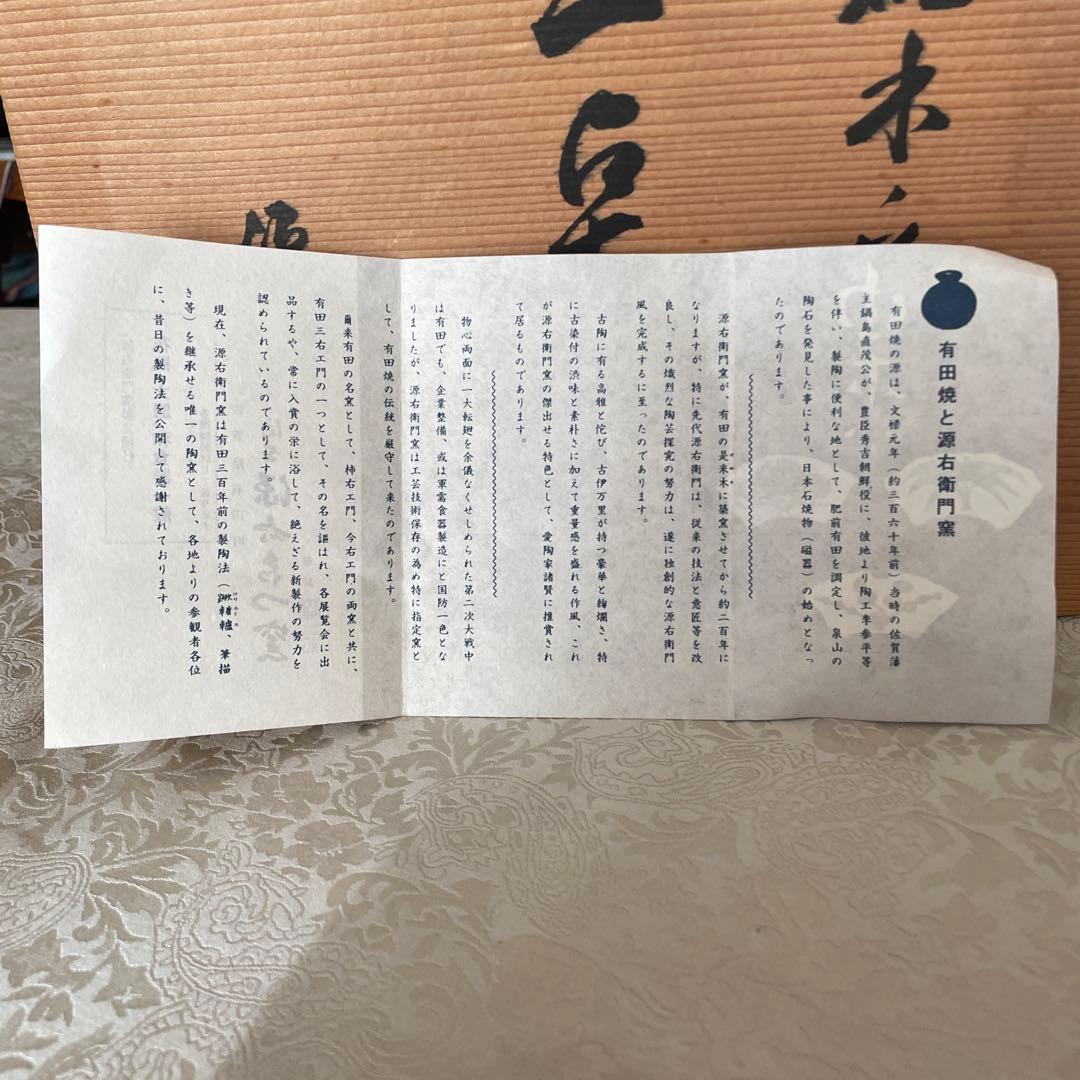 有田焼と源右衛門窯
有田焼の源は、文禄元年（約三百六十年前）当時の佐賀藩
主鍋島直茂公が、豊臣秀吉朝鮮役に、彼地より陶工李参平等
を伴い、製陶に便利な地として、肥前有田を調定し、泉山の
陶石を発見した事により、日本石焼物（磁器）の始めとなっ
たのであります。
源右衛門窯が、有田の是米木に築窯させてから約二百年に
なりますが、特に先代源右衛門は、従来の技法と意匠等を改
良し、その熾烈な陶芸探究の努力は、遂に独創的な源右衛門
風を完成するに至ったのであります。
古陶に有る高雅と侘び、古伊万里が持つ豪華と絢爛さ、特
に古染付の渋味と素朴さに加えて重量感を盛れる作風、これ
が源右衛門窯の傑出せる特色として、愛陶家諸賢に推賞され
て居るものであります。
物心両面に一大転廻を余儀なくせしめられた第二次大戦中
は有田でも、企業整備、或は軍需食器製造にと国防一色とな
りましたが、源右衛門窯は工芸技術保存の為め特に指定窯と
して、有田焼の伝統を厳守して来たのであります。
爾来有田の名窯として、柿右エ門、今右エ門の両窯と共に、
有田三右エ門の一つとして、その名を謳はれ、各展覧会に出
品するや、常に入賞の栄に浴して、絶えざる新製作の努力を
認められているのであります。
現在、源右衛門窯は有田三百年前の製陶法（蹴轆轤、筆描
き等）を継承せる唯一の陶窯として、各地よりの参観者各位
に、昔日の製陶法を公開して感謝されております。